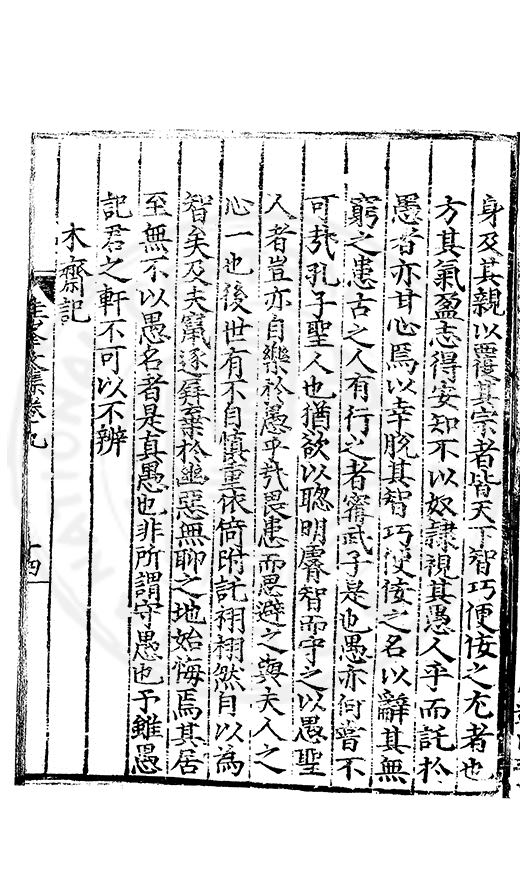 身及其親以覆其宗者皆天下智巧便佞之尤者也
方其氣盈志得安知不以奴隸視其愚人乎而託於
愚者亦甘心焉以幸脫其智巧便佞之名以辭其無
窮之患古之人有行之者甯武子是也愚亦何嘗不
可㢤孔子聖人也猶欲以聦明睿智而守之以愚聖
人者豈亦自樂於愚乎㢤畏患而思避之與夫人之
心一也後世有不自慎重依倚附託栩栩然自以為
智矣及夫竄逐屏棄於幽惡無聊之地始悔焉其居
至無不以愚名者是真愚也非所謂守愚也予雖愚
記君之軒不可以不辨
木齋記
文集卷之九
十四